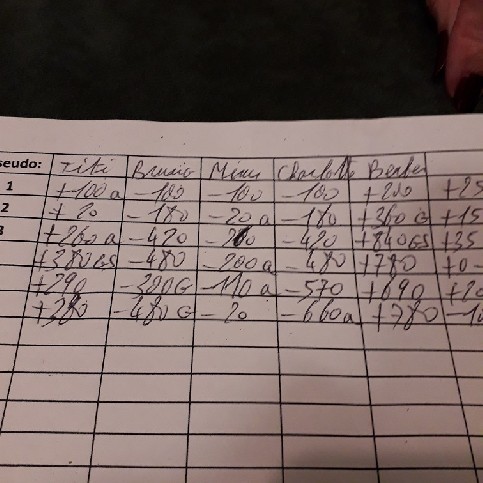 seudo: Titi Bruno Minus Charlotte
1 +100a -100 -100 -100 +200 +25
2 +20 -180 -20a -180 +360G +15
3 +260a -420 -420 +840GS +35
+380GS -480 -200a -480 +780 +0
+290 -300G -110a -570 +690 +20
+380 -480G -20 -660a +780